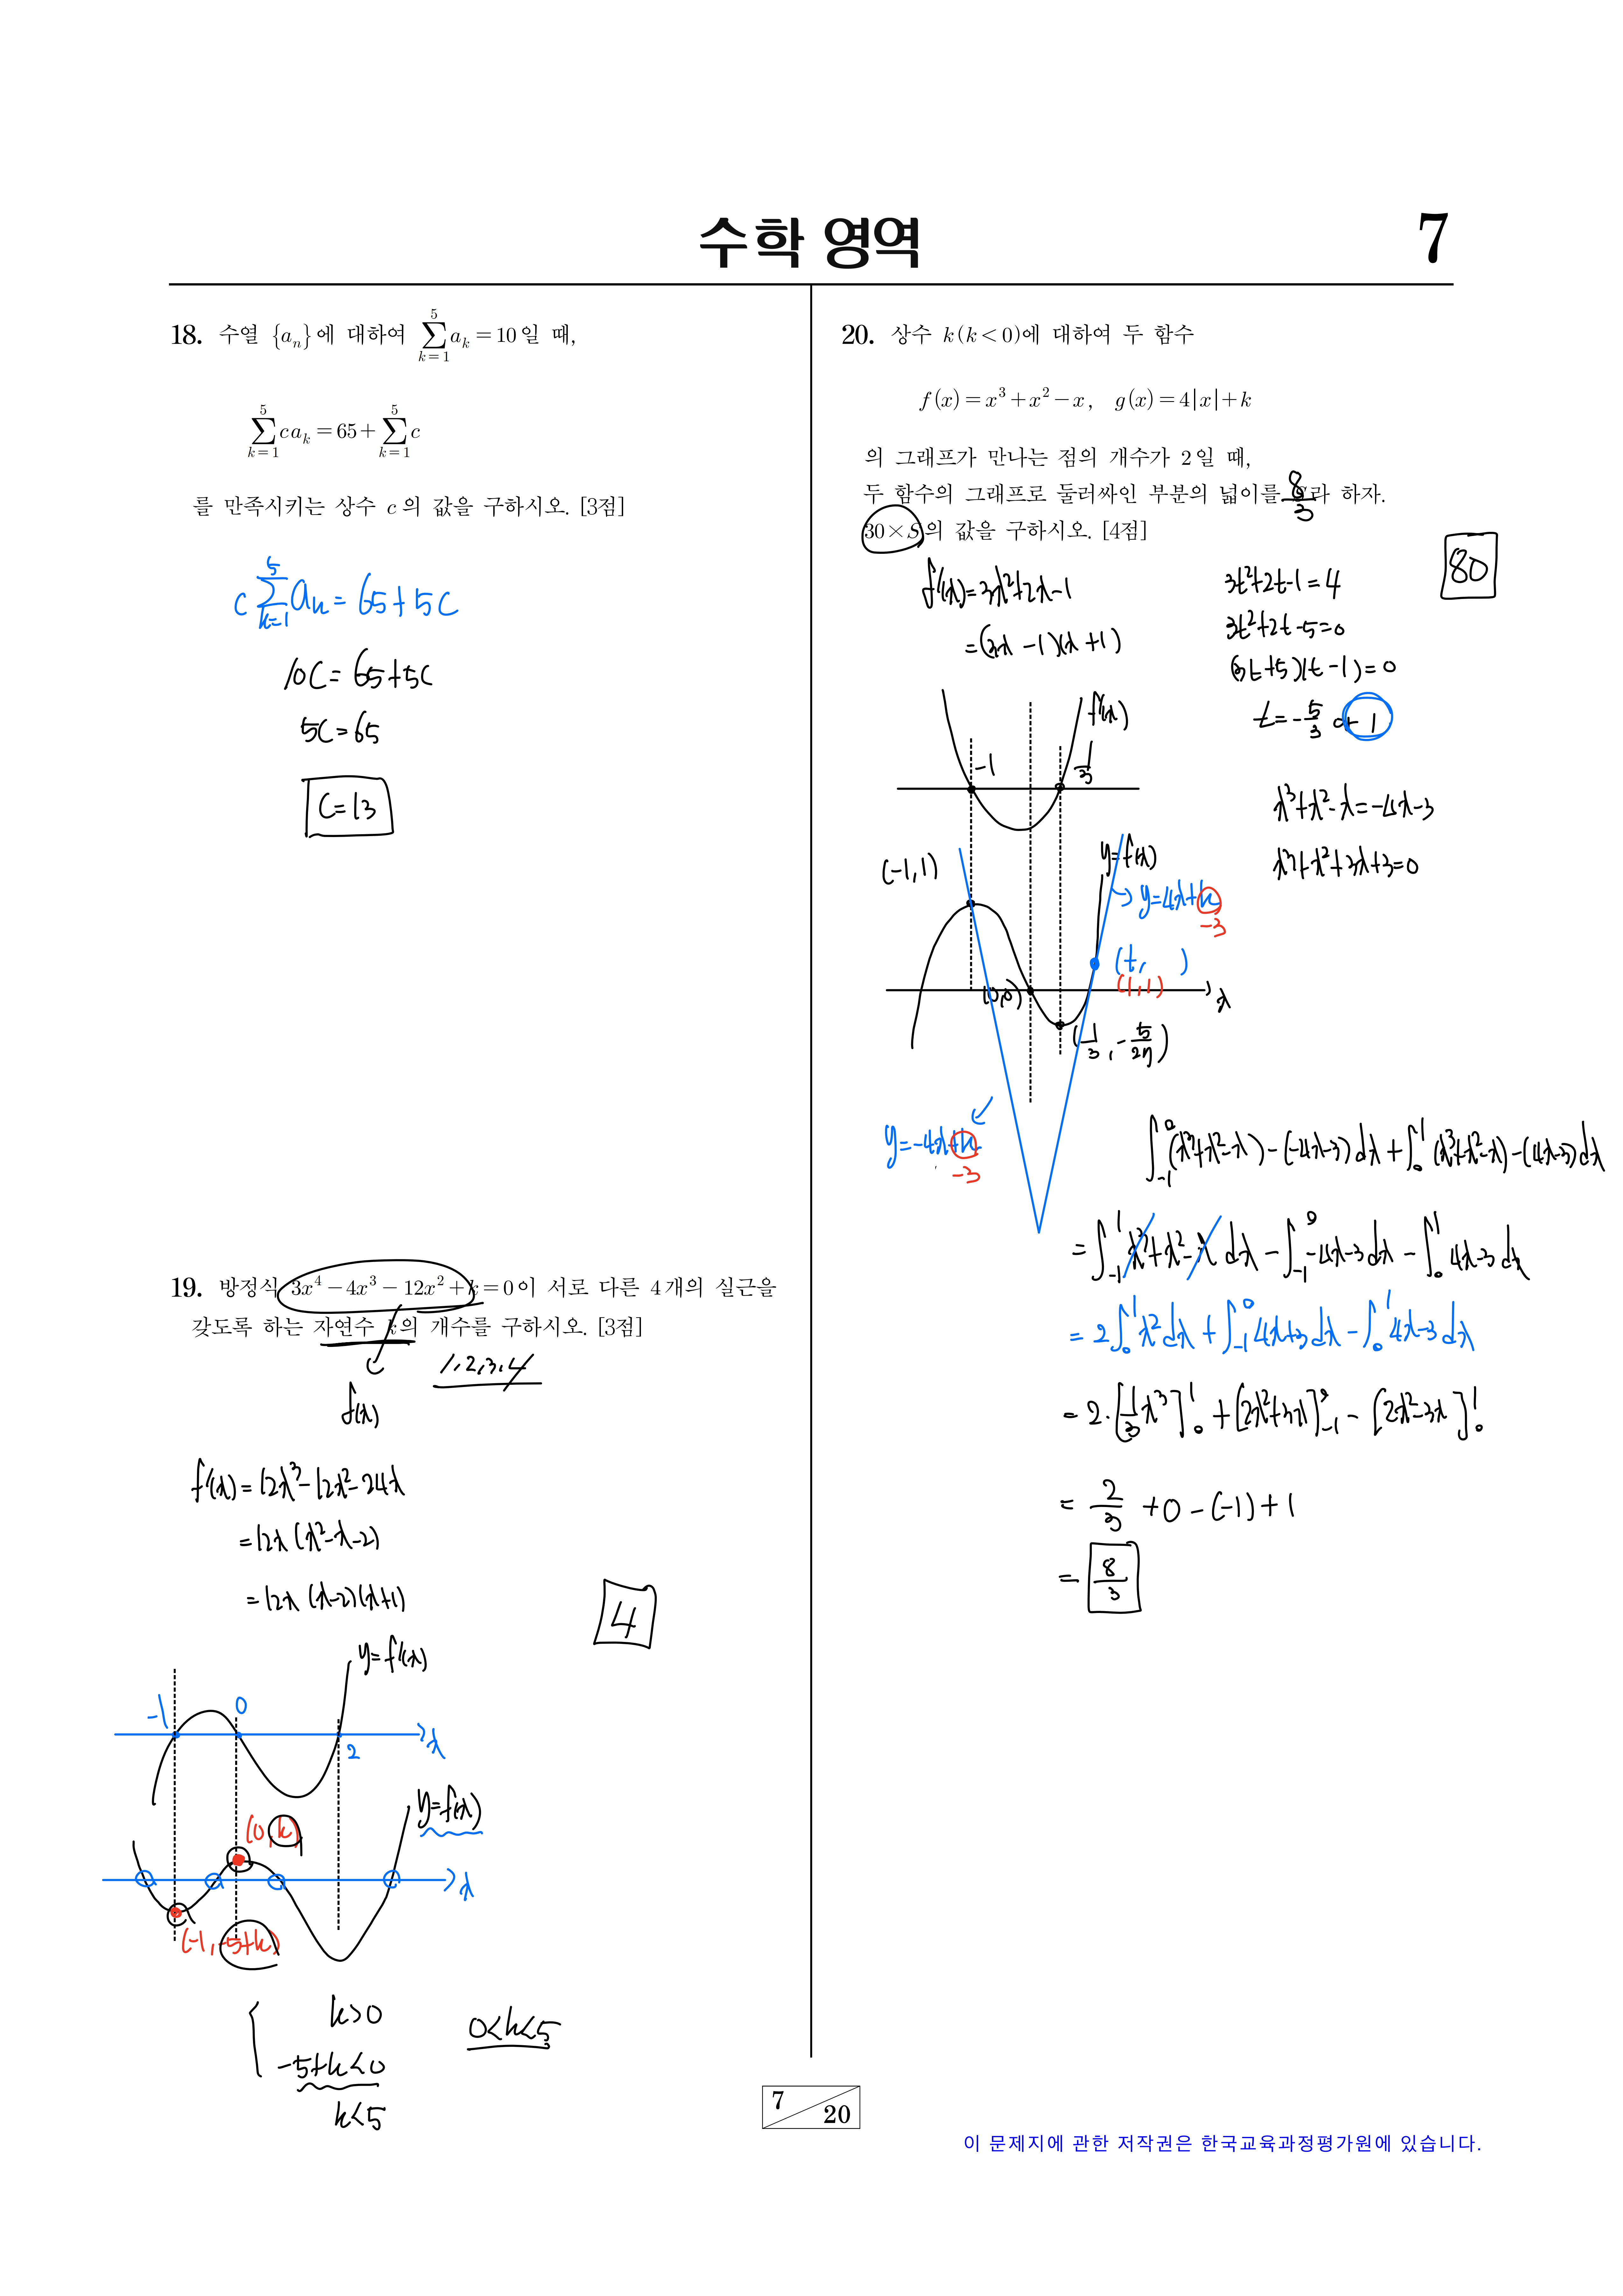 수학 영역
7
18. 수열 {aₙ}에 대하여 ∑_{k=1}^{5} a_k = 10일 때,
∑_{k=1}^{5} ca_k = 65 + ∑_{k=1}^{5} c
를 만족시키는 상수 c의 값을 구하시오. [3점]
c ∑_{k=1}^{5} a_k = 65+5c
10c = 65+5c
5c = 65
c = 13
19. 방정식 3x⁴ − 4x³ − 12x² + k = 0이 서로 다른 4개의 실근을
갖도록 하는 자연수 k의 개수를 구하시오. [3점]
1, 2, 3, 4
f(x)
f'(x) = 12x³ − 12x² − 24x
= 12x (x² − x − 2)
= 12x (x−2)(x+1)
4
y = f'(x)
-1
0
2
x
y = f(x)
(0, k)
x
(-1, -5+k)
k>0
-5+k<0
k<5
0<k<5
20. 상수 k(k<0)에 대하여 두 함수
f(x) = x³ + x² − x, g(x) = 4|x| + k
의 그래프가 만나는 점의 개수가 2일 때,
두 함수의 그래프로 둘러싸인 부분의 넓이를 S라 하자.
8/3
30×S의 값을 구하시오. [4점]
80
f'(x) = 3x²+2x−1
= (3x−1)(x+1)
3t²+2t−1 = 4
3t²+2t−5 = 0
(3t+5)(t−1) = 0
t = −5/3 or 1
f'(x)
-1
1/3
x³+x²−x = −4x−3
x³+x²+3x+3 = 0
(-1, 1)
y = f(x)
→ y = 4x+k
-3
(t, )
(1, 1)
(0, 0)
x
(1/3, −5/27)
y = −4x+k
-3
∫_{-1}^{0} (x³+x²−x) − (−4x−3) dx + ∫_{0}^{1} (x³+x²−x) − (4x−3) dx
= ∫_{-1}^{1} x³+x²−x dx − ∫_{-1}^{0} −4x−3 dx − ∫_{0}^{1} 4x−3 dx
= 2∫_{0}^{1} x² dx + ∫_{-1}^{0} 4x+3 dx − ∫_{0}^{1} 4x−3 dx
= 2·[1/3 x³]_{0}^{1} + [2x²+3x]_{-1}^{0} − [2x²−3x]_{0}^{1}
= 2/3 + 0 − (−1) + 1
= 8/3
7
20
이 문제지에 관한 저작권은 한국교육과정평가원에 있습니다.